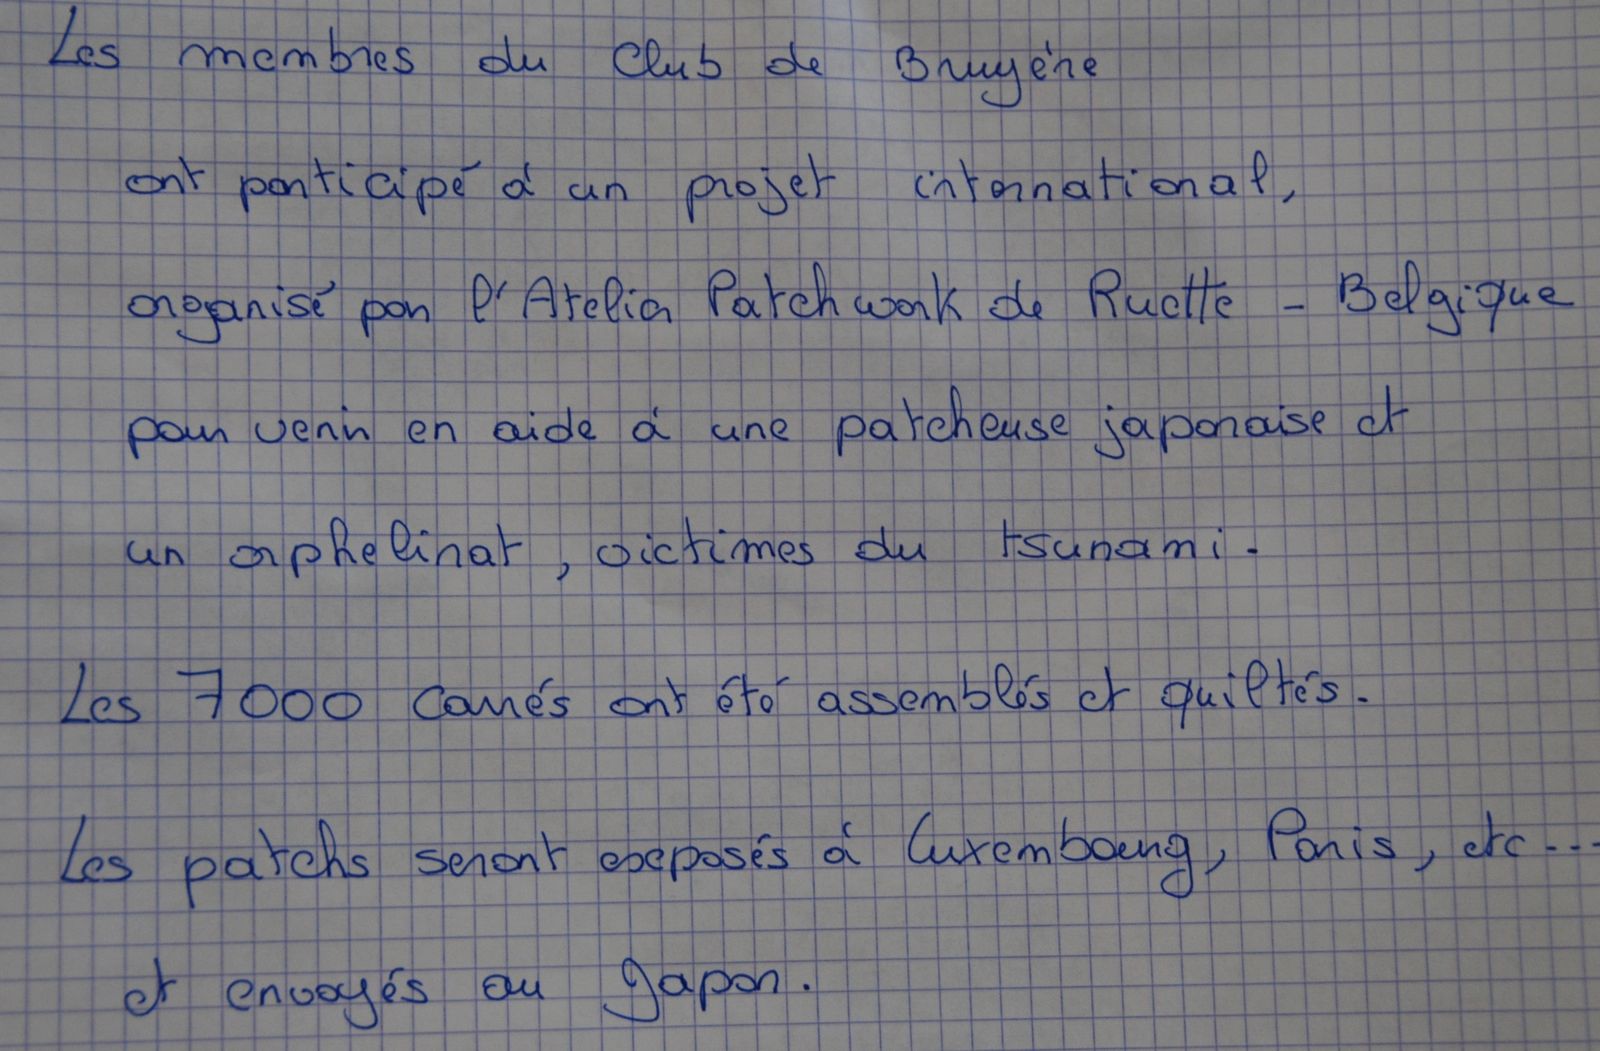 Les membres du Club de Bruyère
ont participé à un projet international,
organisé par l'Atelier Patchwork de Ruette - Belgique
pour venir en aide à une patcheuse japonaise et
un orphelinat, victimes du tsunami.
Les 7000 carrés ont été assemblés et quiltés.
Les patchs seront exposés à Luxembourg, Paris, etc...
et envoyés au Japon.